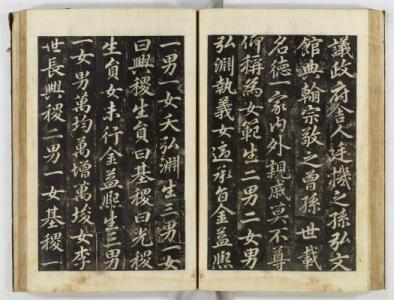 議政府舍人廷機之孫弘文
館典翰宗敬之曾孫世載
名德一家内外親戚莫不尊
仰稱為女範生二男二女男
弘淵執義女適承旨金益熙
一男一女夭弘淵生三男一女
曰興稷生員曰基稷曰光稷
生員女未行金益熙生三男
一女男萬均萬增萬埈女李
世長興稷二男一女基稷一